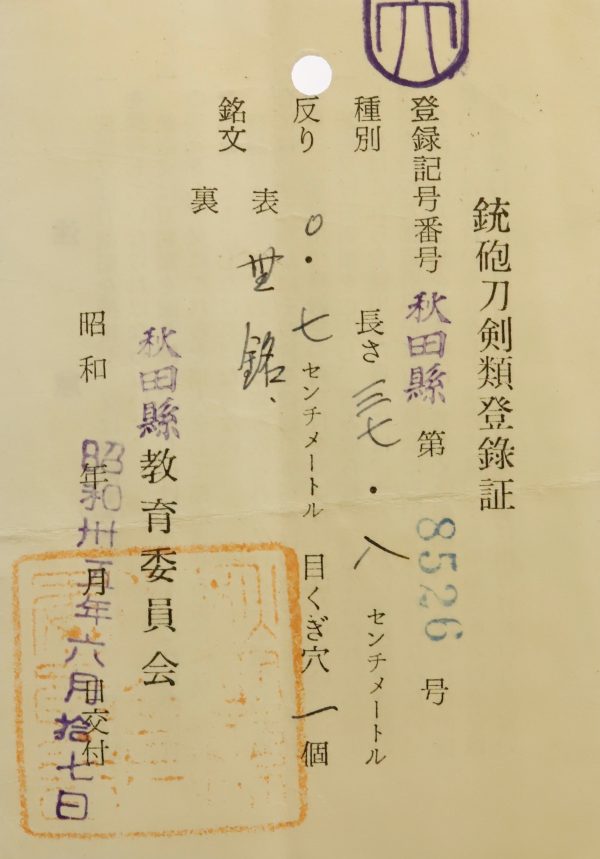 銃砲刀剣類登錄証
登録記号番号 秋田縣 第 8526 号
種別 長さ 三七・八 センチメートル
反り 0・七 センチメートル 目くぎ穴 一 個
銘文 表 無銘、
裏
秋田縣教育委員会
昭和 年 月 日交付
昭和卅五年六月拾七日